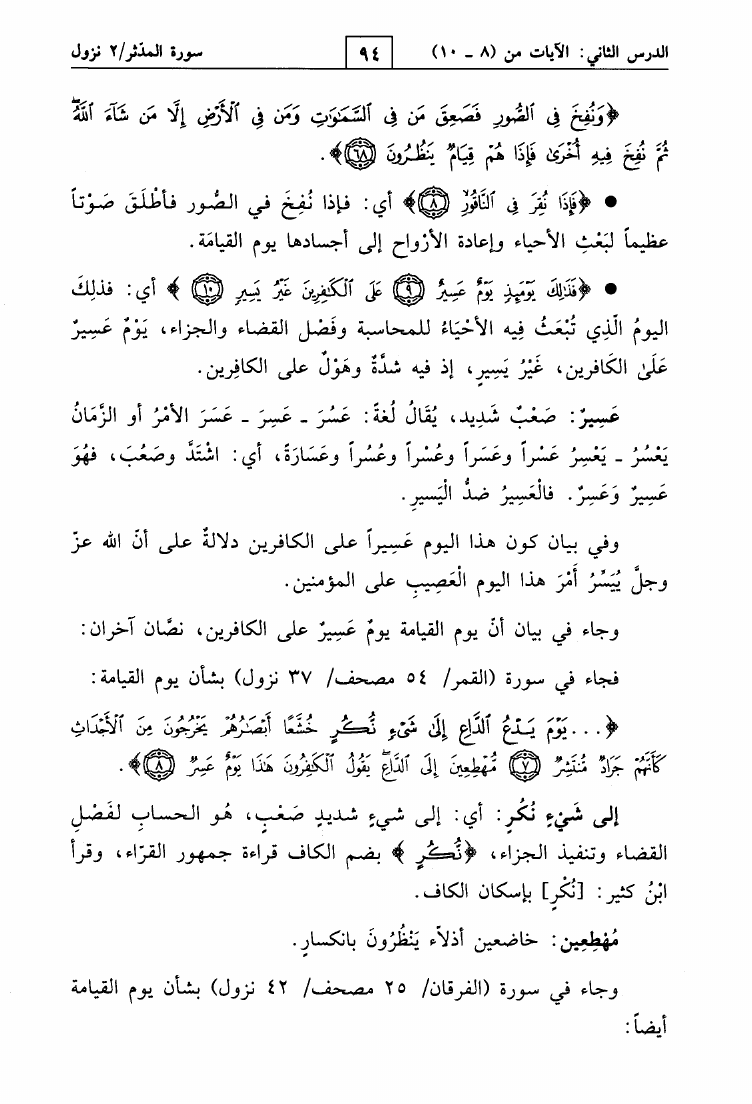 الدرس الثاني: الآيات من (٨ - ١٠) ٩٤ سورة المدّثر/٢ نزول
﴿وَنُفِخَ فِى ٱلصُّورِ فَصَعِقَ مَن فِى ٱلسَّمَٰوَٰتِ وَمَن فِى ٱلْأَرْضِ إِلَّا مَن شَآءَ ٱللَّهُۖ
ثُمَّ نُفِخَ فِيهِ أُخْرَىٰ فَإِذَا هُمْ قِيَامٌ يَنظُرُونَ ٦٨﴾.
● ﴿فَإِذَا نُقِرَ فِى ٱلنَّاقُورِ ٨﴾ أي: فإذا نُفِخَ في الصُّور فأطْلَقَ صَوْتاً
عظيماً لبَعْثِ الأحياء وإعادة الأرْواح إلى أجسادها يوم القيامَة.
● ﴿فَذَٰلِكَ يَوْمَئِذٍ يَوْمٌ عَسِيرٌ ٩ عَلَى ٱلْكَٰفِرِينَ غَيْرُ يَسِيرٍ ١٠﴾ أي: فذلِكَ
اليومُ الّذِي تُبْعَثُ فِيه الأحْيَاءُ للمحاسبة وفَصْل القضاء والجزاء، يَوْمٌ عَسِيرٌ
عَلَىٰ الكَافرين، غَيْرُ يَسِيرٍ، إذ فيه شدَّةٌ وهَوْلٌ على الكافِرِين.
عَسِيرٌ: صَعْبٌ شَدِيد، يُقَالُ لُغةً: عَسُرَ - عَسِرَ - عَسَرَ الأمْرُ أو الزَّمَانُ
يَعْسُرُ - يَعْسِرُ عَسْراً وعَسَراً وعُسْراً وعُسُراً وعَسَارَةً، أي: اشْتَدَّ وصَعُبَ، فهُوَ
عَسِيرٌ وَعَسِرٌ. فالْعَسِيرُ ضدُّ الْيَسيرِ.
وفي بيان كون هذا اليوم عَسِيراً على الكافرين دلالةٌ على أنّ الله عزّ
وجلَّ يُيَسِّرُ أَمْرَ هذا اليوم الْعَصِيبِ على المؤمنين.
وجاء في بيان أنّ يوم القيامة يومٌ عَسِيرٌ على الكافرين، نصَّان آخران:
فجاء في سورة (القمر/ ٥٤ مصحف/ ٣٧ نزول) بشأن يوم القيامة:
﴿...يَوْمَ يَدْعُ ٱلدَّاعِ إِلَىٰ شَىْءٍ نُّكُرٍ خُشَّعًا أَبْصَٰرُهُمْ يَخْرُجُونَ مِنَ ٱلْأَجْدَاثِ
كَأَنَّهُمْ جَرَادٌ مُّنتَشِرٌ ٧ مُّهْطِعِينَ إِلَى ٱلدَّاعِۖ يَقُولُ ٱلْكَٰفِرُونَ هَٰذَا يَوْمٌ عَسِرٌ ٨﴾.
إلى شَيْءٍ نُكُرٍ: أي: إلى شيءٍ شديدٍ صَعْبٍ، هُو الحسابِ لفَصْلِ
القضاء وتنفيذ الجزاء، ﴿نُّكُرٍ﴾ بضم الكاف قراءة جمهور القرّاء، وقرأ
ابْنُ كثير: [نُكْرٍ] بإسكان الكاف.
مُهْطِعِين: خاضعين أذلاّء يَنْظُرُونَ بانكسارٍ.
وجاء في سورة (الفرقان/ ٢٥ مصحف/ ٤٢ نزول) بشأن يوم القيامة
أيضاً: